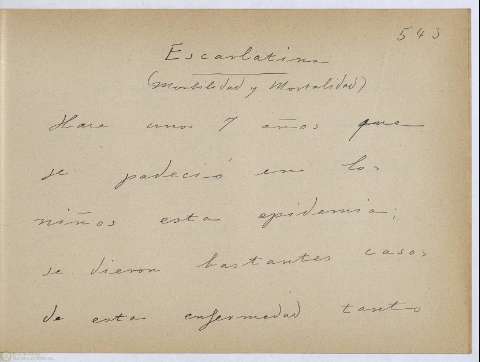 543
Escarlatina
(Morbilidad y Mortalidad)
Hara unos 7 años que
se padeció en los
niños esta epidemia;
se dieron bastantes casos
de esta enfermedad tanto